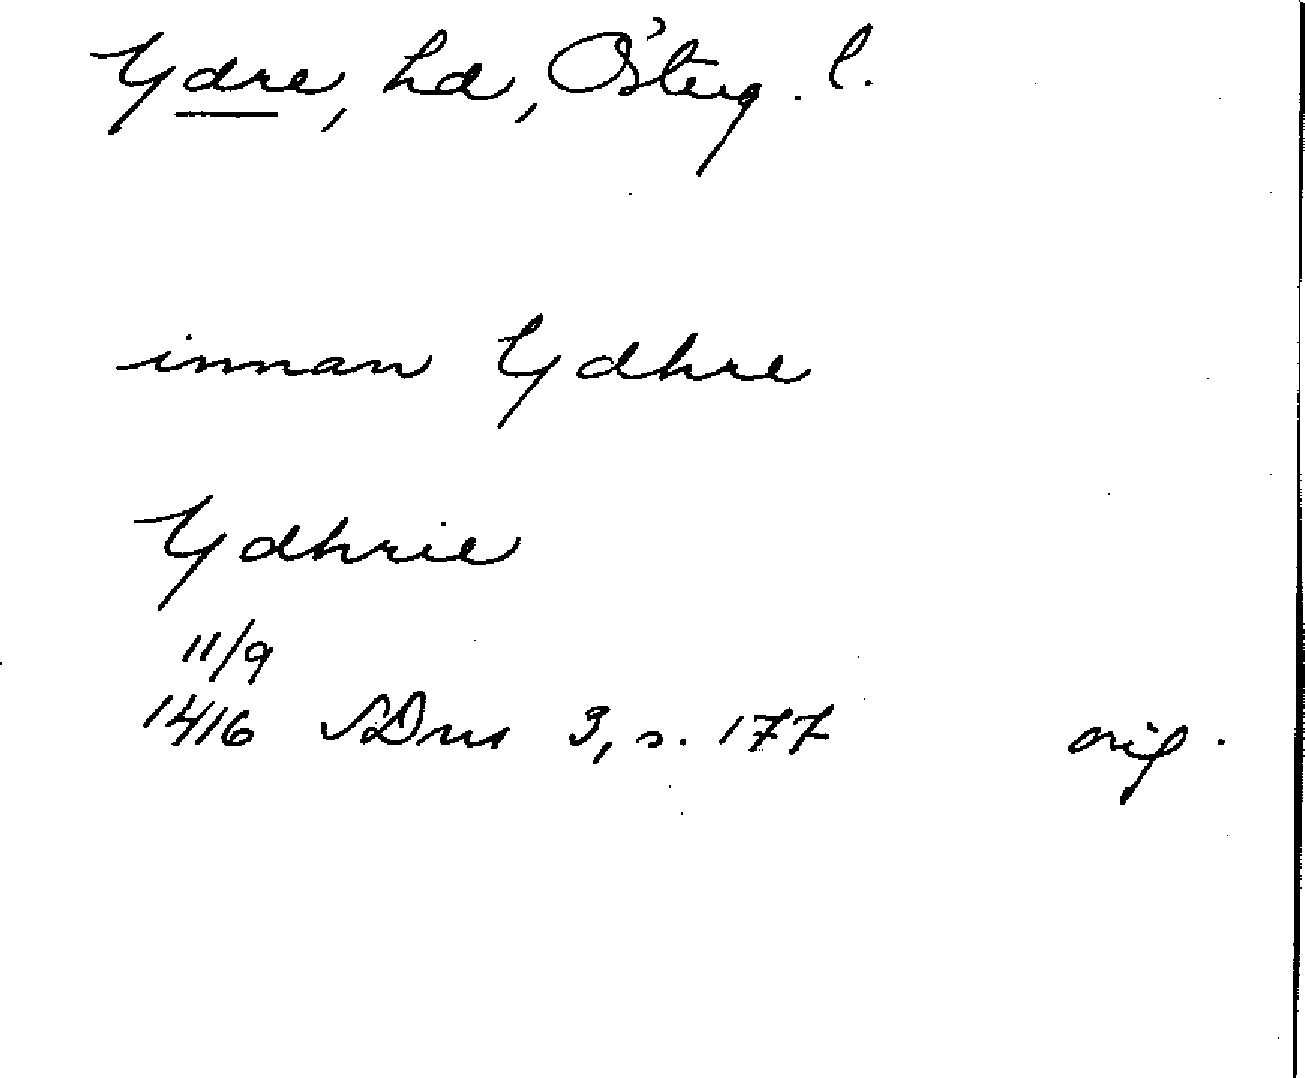 Ydre, hd, Österg. l.
innan Ydhre
Ydhrie
11/9
1416 SDns 3, s. 177 orig.